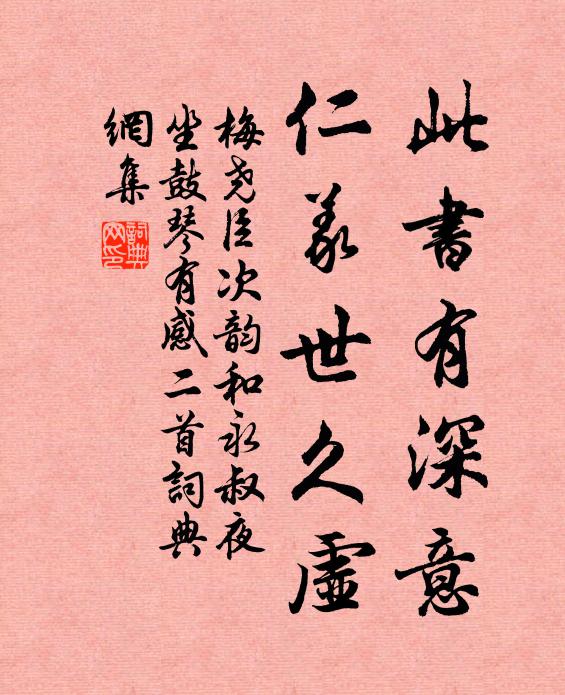 此書有深意
仁義世久虛
梅堯臣次韵和永叔夜
坐鼓琴有感二首詞典
網集
詞典
网印